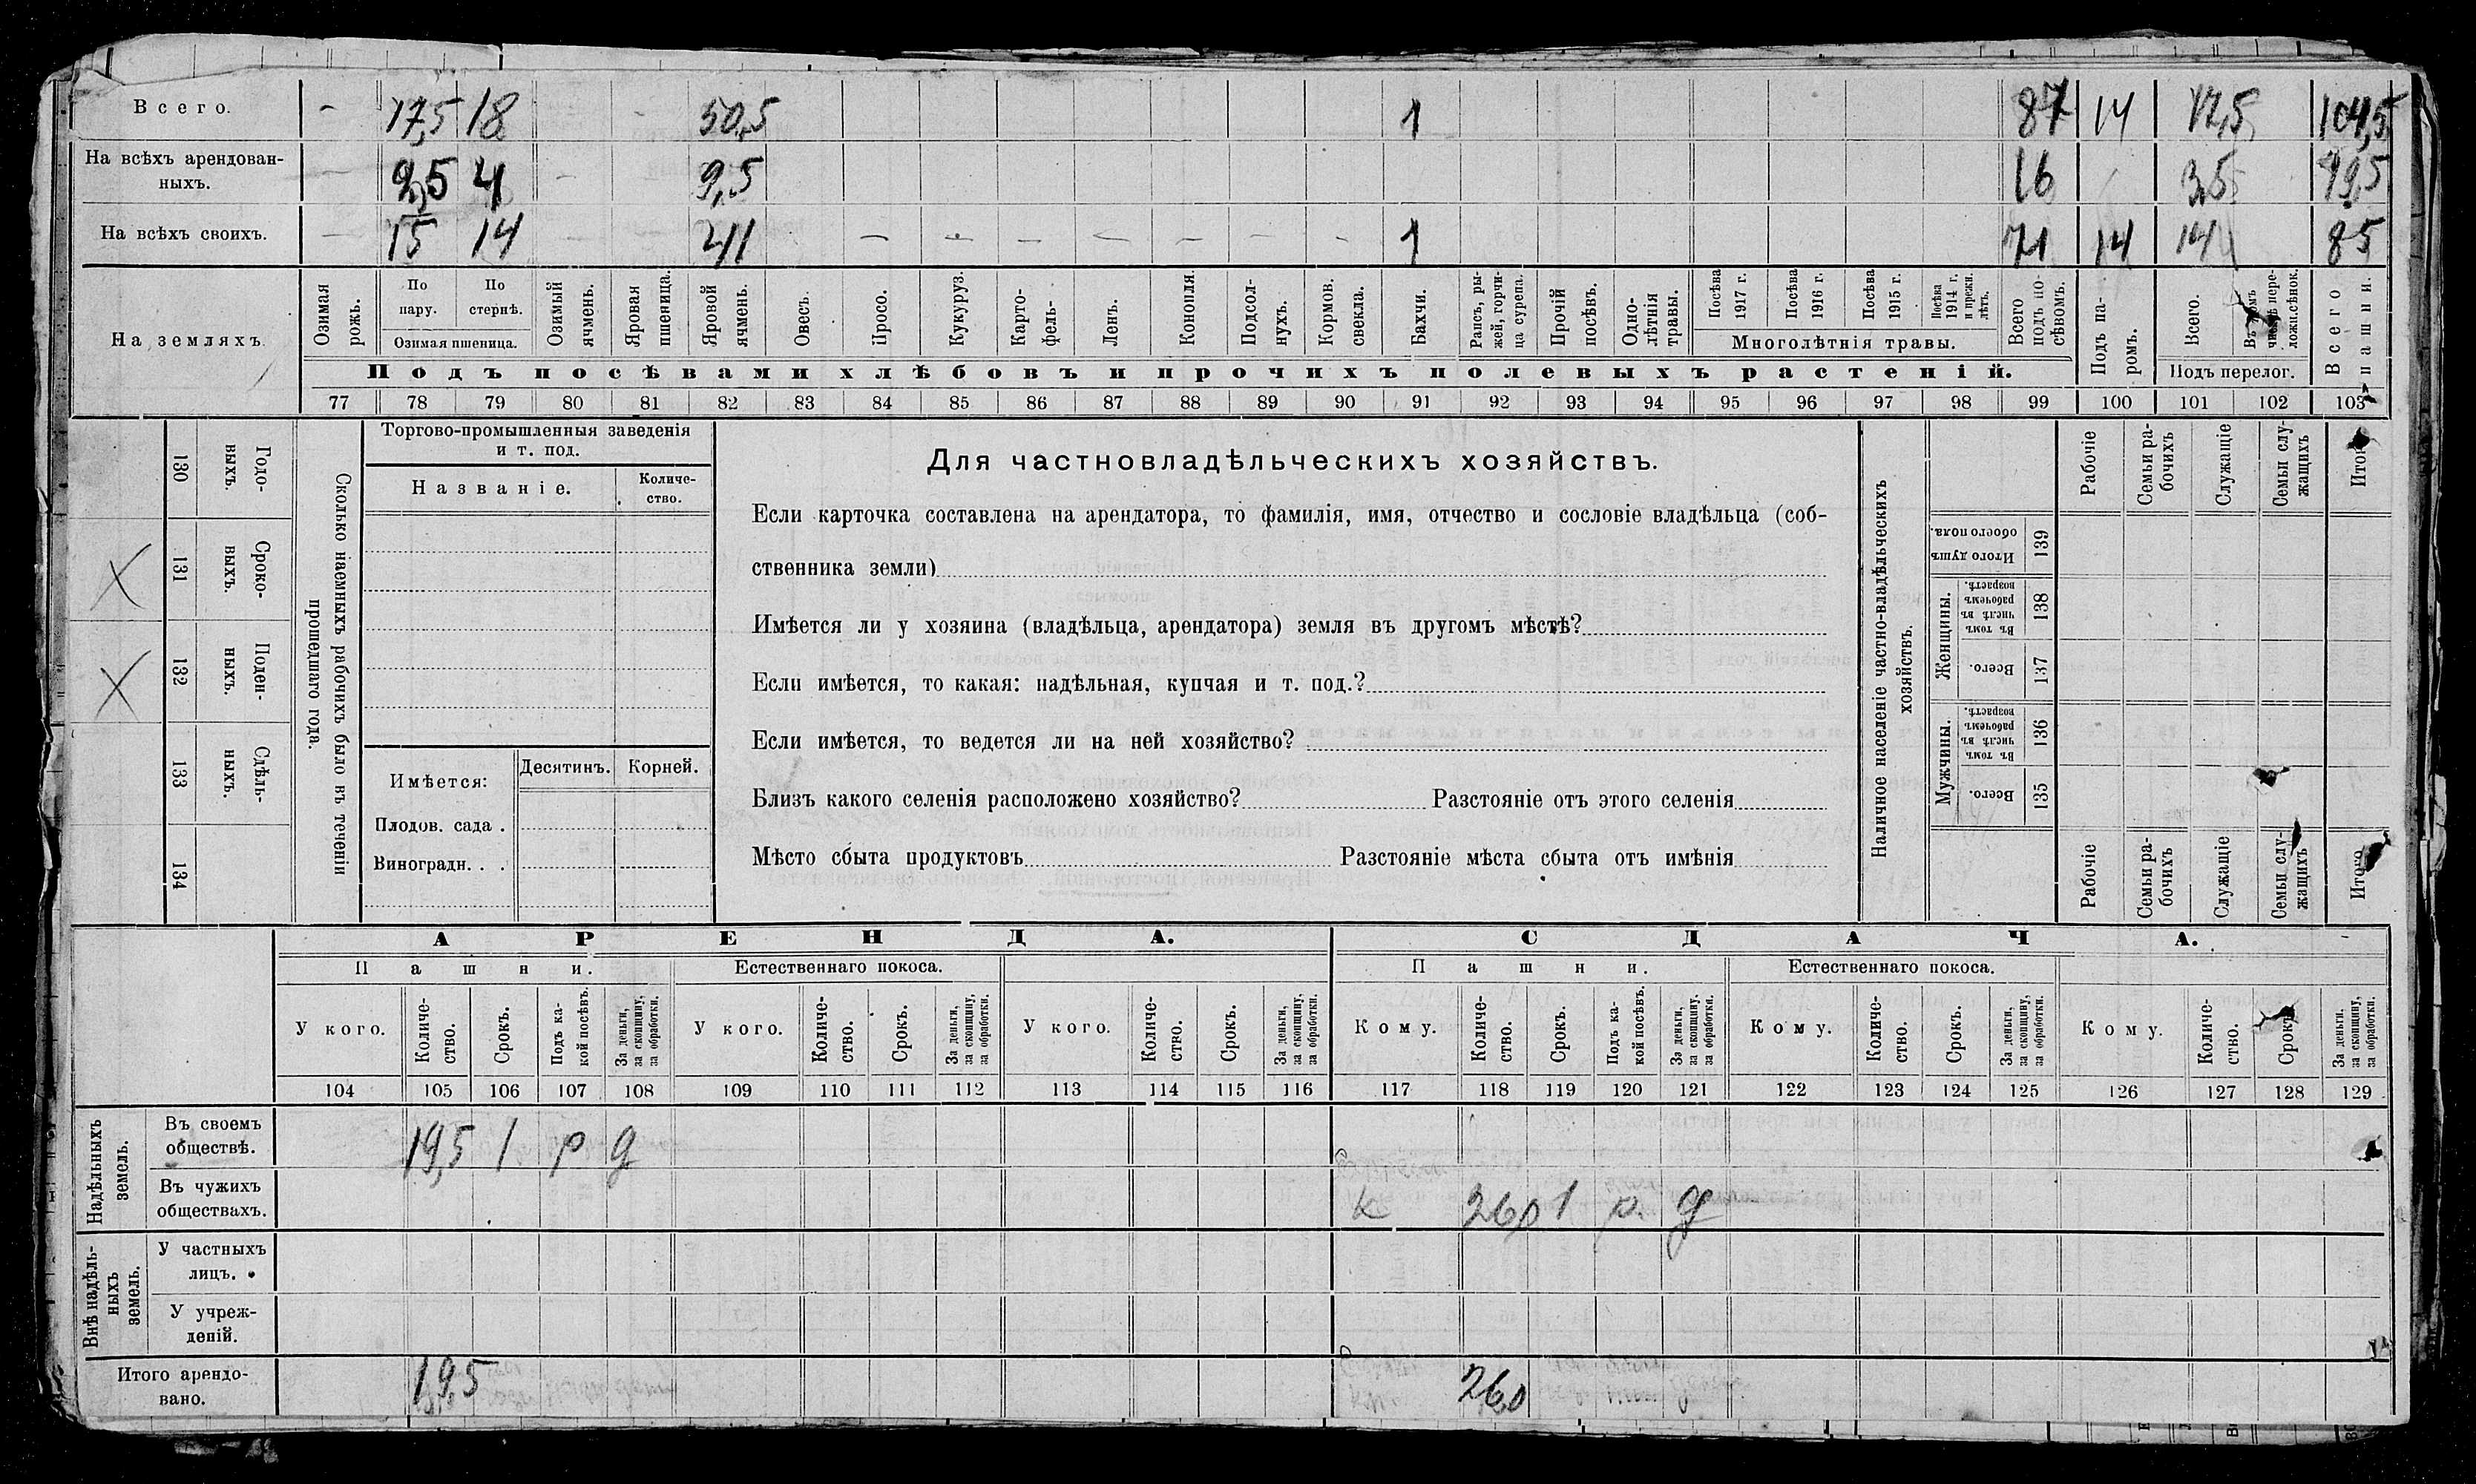 Всего. – 17,5 18 50,5 1 87 14 17,5 104,5
На всѣхъ арендован-
ныхъ. 2,5 4 – 9,5 16 3,5 19,5
На всѣхъ своихъ. – 15 14 – 41 – – – – – – – 1 71 14 14 85
На земляхъ.
Озимая рожь.
По пару.
По стернѣ.
Озимая пшеница.
Озимый ячмень.
Яровая пшеница.
Яровой ячмень.
Овесъ.
Просо.
Кукуруз.
Карто-
фель.
Ленъ.
Конопля.
Подсол-
нухъ.
Кормов. свекла.
Бахчи.
Рапсъ, ры-
жой, горчи-
ца сурепа.
Прочій посѣвъ.
Одно-
лѣтнія травы.
Посѣва 1917 г.
Посѣва 1916 г.
Посѣва 1915 г.
Посѣва 1914 г. и прежн. лѣтъ.
Многолѣтнія травы.
Всего подъ по-
сѣвомъ.
Подъ посѣвами хлѣбовъ и прочихъ полевыхъ растеній.
Подъ па-
ромъ.
Всего.
Въ томъ числѣ пере-
ложн. сѣнок.
Подъ перелог.
Всего пашни.
77 78 79 80 81 82 83 84 85 86 87 88 89 90 91 92 93 94 95 96 97 98 99 100 101 102 103
Сколько наемныхъ рабочихъ было въ теченіи
прошедшаго года.
Годо-
выхъ. 130
Сроко-
выхъ. 131
Поден-
ныхъ. 132
Сдѣль-
ныхъ. 133
134
Торгово-промышленныя заведенія
и т. под.
Названіе.
Количе-
ство.
Имѣется:
Десятинъ. Корней.
Плодов. сада .
Виноградн. . .
Для частновладѣльческихъ хозяйствъ.
Если карточка составлена на арендатора, то фамилія, имя, отчество и сословіе владѣльца (соб-
ственника земли)
Имѣется ли у хозяина (владѣльца, арендатора) земля въ другомъ мѣстѣ?
Если имѣется, то какая: надѣльная, купчая и т. под.?
Если имѣется, то ведется ли на ней хозяйство?
Близъ какого селенія расположено хозяйство? Разстояніе отъ этого селенія
Мѣсто сбыта продуктовъ Разстояніе мѣста сбыта отъ имѣнія
Наличное населеніе частно-владѣльческихъ
хозяйствъ.
Рабочіе
Семьи ра-
бочихъ
Служащіе
Семьи слу-
жащихъ
Итого
Итого душъ обоего пола. 139
Женщины.
Въ томъ числѣ въ рабочемъ возрастѣ. 138
Всего. 137
Мужчины.
Въ томъ числѣ въ рабочемъ возрастѣ. 136
Всего. 135
Рабочіе
Семьи ра-
бочихъ
Служащіе
Семьи слу-
жащихъ
Итого
АРЕНДА. СДАЧА.
Пашни. Естественнаго покоса. Пашни. Естественнаго покоса.
У кого.
Количе-
ство.
Срокъ.
Подъ ка-
кой посѣвъ.
За деньги, за скопщину, за обработки.
У кого.
Количе-
ство.
Срокъ.
За деньги, за скопщину, за обработки.
У кого.
Количе-
ство.
Срокъ.
За деньги, за скопщину, за обработки.
Кому.
Количе-
ство.
Срокъ.
Подъ ка-
кой посѣвъ.
За деньги, за скопщину. за обработки.
Кому.
Количе-
ство.
Срокъ.
За деньги, за скопщину, за обработки.
Кому.
Количе-
ство.
Срокъ.
За деньги. за скопщину, за обработки.
104 105 106 107 108 109 110 111 112 113 114 115 116 117 118 119 120 121 122 123 124 125 126 127 128 129
Надѣльныхъ
земель.
Въ своемъ
обществѣ. 19,5 1 р д
Въ чужихъ
обществахъ. к 26,0 1 р. д
Внѣ надѣль-
ныхъ
земель.
У частныхъ
лицъ.
У учреж-
деній.
Итого арендо-
вано. 19,5 26,0